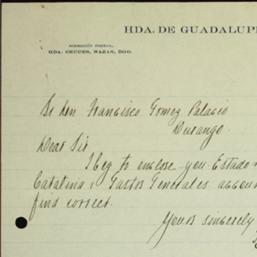 HDA. DE GUADALUP
DIRECCIÓN POSTAL,
HDA. GRUCES, NAZAS, DGO.
Sr Don Francisco Gomez Palacio
Durango.
Dear Sir
I beg to enclose you Estado
Catalina & Gastos Generales accou
find correct.
Yours sincerely